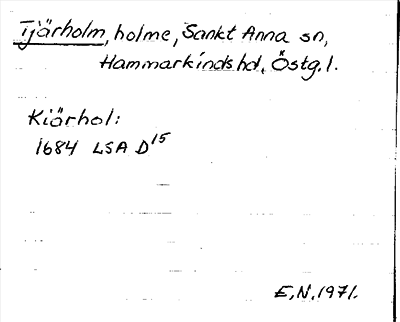 Tjärholm, holme, Sankt Anna sn,
Hammarkinds hd, Östg. l.
Kiörhol:
1684 LSA D15
E.N. 1971.